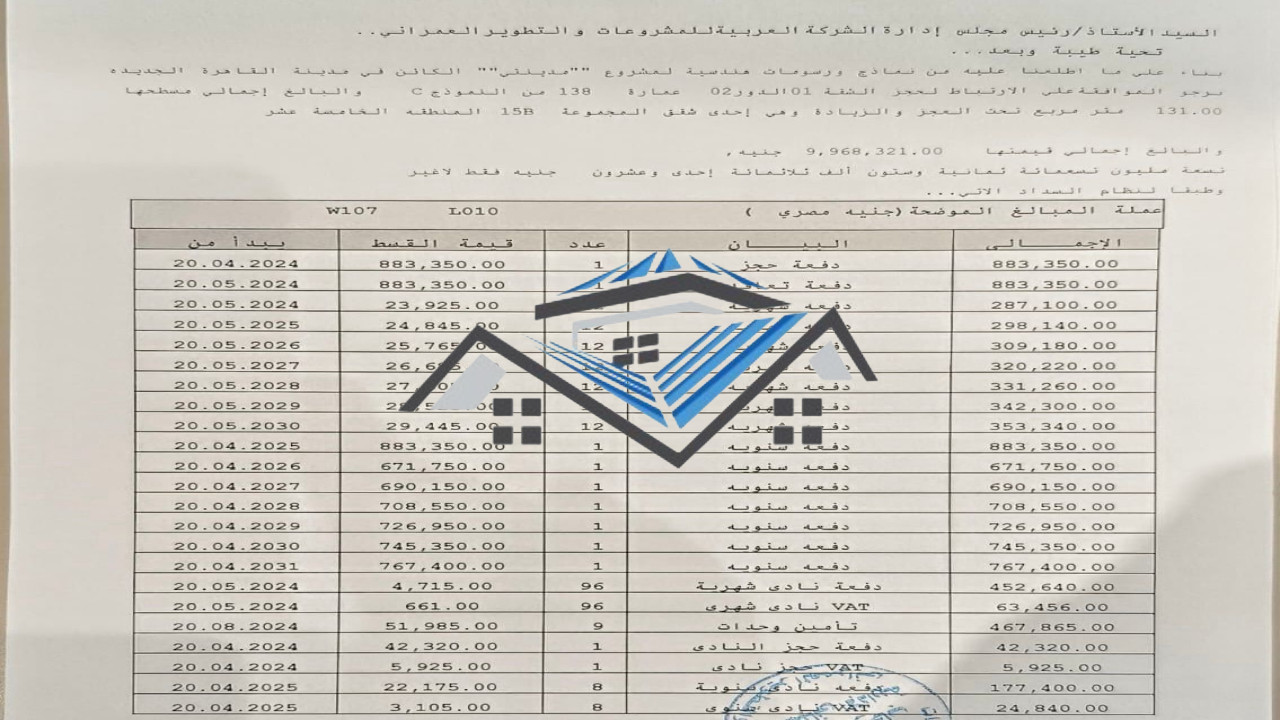 السيد الأستاذ/رئيس مجلس إدارة الشركة العربية للمشروعات والتطوير العمراني..
تحية طيبة وبعد...
بناء على ما اطلعنا عليه من نماذج ورسومات هندسية لمشروع ""مدينتي"" الكائن في مدينة القاهرة الجديده
برجو الموافقة على الارتباط لحجز الشقة 01الدور02 عمارة 138 من النموذج C والبالغ إجمالي مسطحها
131.00 متر مربع تحت العجز والزيادة وهي إحدى شقق المجموعة 15B المنطقه الخامسة عشر
والبالغ إجمالي قيمتها 9,968,321.00 جنيه,
تسعة مليون تسعمائة ثمانية وستون ألف ثلاثمائة إحدى وعشرون جنيه فقط لاغير
وطبقا لنظام السداد الاتي...
عملة المبالغ الموضحة (جنيه مصري ) L010 W107
الإجمالى البيان عدد قيمة القسط يبدأ من
883,350.00 دفعة حجز 1 883,350.00 20.04.2024
883,350.00 دفعة 1 883,350.00 20.05.2024
287,100.00 دفعه 23,925.00 20.05.2024
298,140.00 12 24,845.00 20.05.2025
309,180.00 12 25,765.00 20.05.2026
320,220.00 20.05.2027
331,260.00 دفعه شهريه 12 20.05.2028
342,300.00 20.05.2029
353,340.00 دفعه شهريه 12 29,445.00 20.05.2030
883,350.00 دفعه سنويه 1 883,350.00 20.04.2025
671,750.00 دفعه سنويه 1 671,750.00 20.04.2026
690,150.00 دفعه سنويه 1 690,150.00 20.04.2027
708,550.00 دفعه سنويه 1 708,550.00 20.04.2028
726,950.00 دفعه سنويه 1 726,950.00 20.04.2029
745,350.00 دفعه سنويه 1 745,350.00 20.04.2030
767,400.00 دفعه سنويه 1 767,400.00 20.04.2031
452,640.00 دفعة نادى شهرية 96 4,715.00 20.05.2024
63,456.00 VAT نادى شهرى 96 661.00 20.05.2024
467,865.00 تأمين وحدات 9 51,985.00 20.08.2024
42,320.00 دفعة حجز النادى 1 42,320.00 20.04.2024
5,925.00 VAT حجز نادى 1 5,925.00 20.04.2024
177,400.00 دفعه نادى سنوية 8 22,175.00 20.04.2025
24,840.00 VAT نادى سنوى 8 3,105.00 20.04.2025